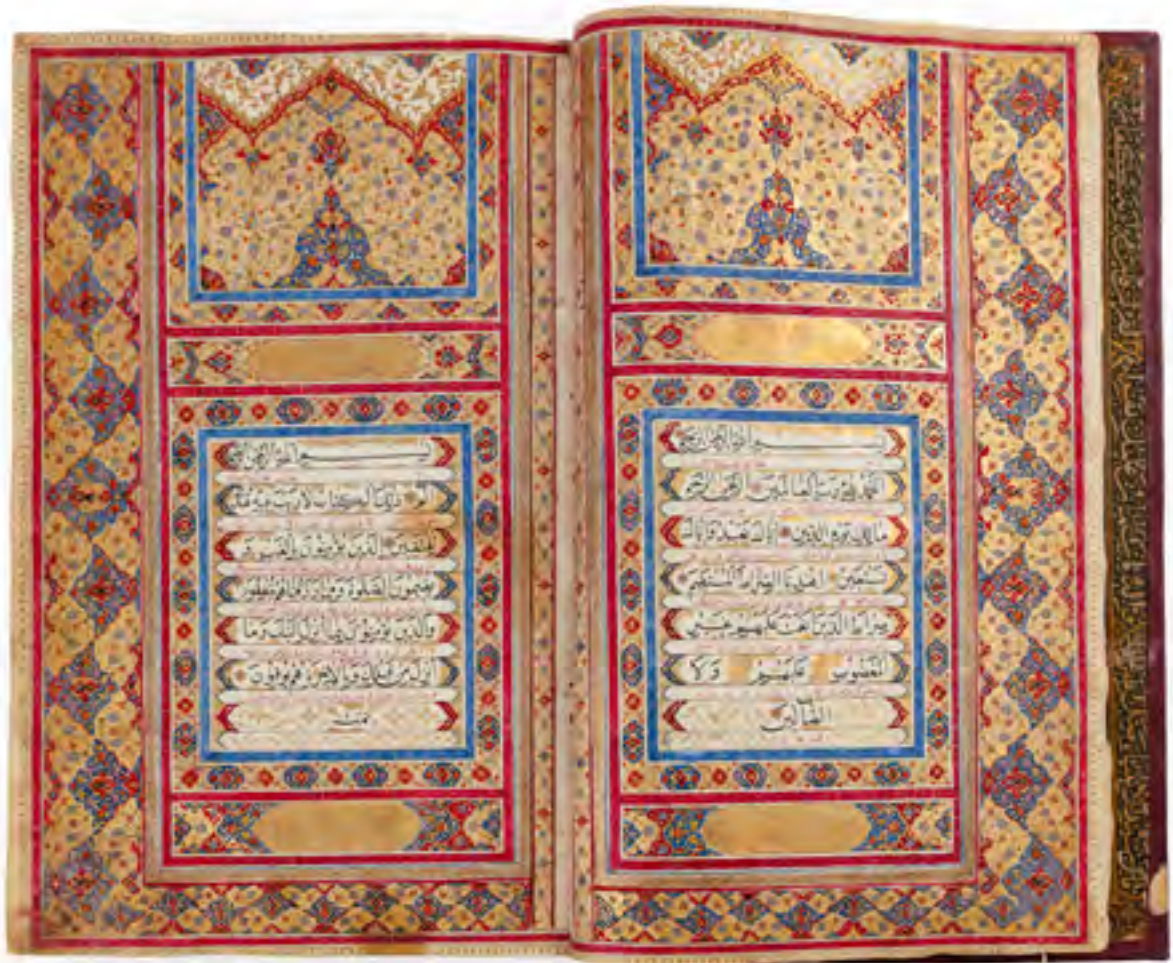 بسم الله الرحمن الرحيم
الحمد لله رب العالمين الرحمن الرحيم
مالك يوم الدين اياك نعبد واياك
نستعين اهدنا الصراط المستقيم
صراط الذين انعمت عليهم غير
المغضوب عليهم ولا
الضالين
بسم الله الرحمن الرحيم
الم ذلك الكتاب لا ريب فيه هدى
للمتقين الذين يؤمنون بالغيب و
يقيمون الصلوة ومما رزقناهم ينفقون
والذين يؤمنون بما انزل اليك وما
انزل من قبلك وبالاخرة هم يوقنون